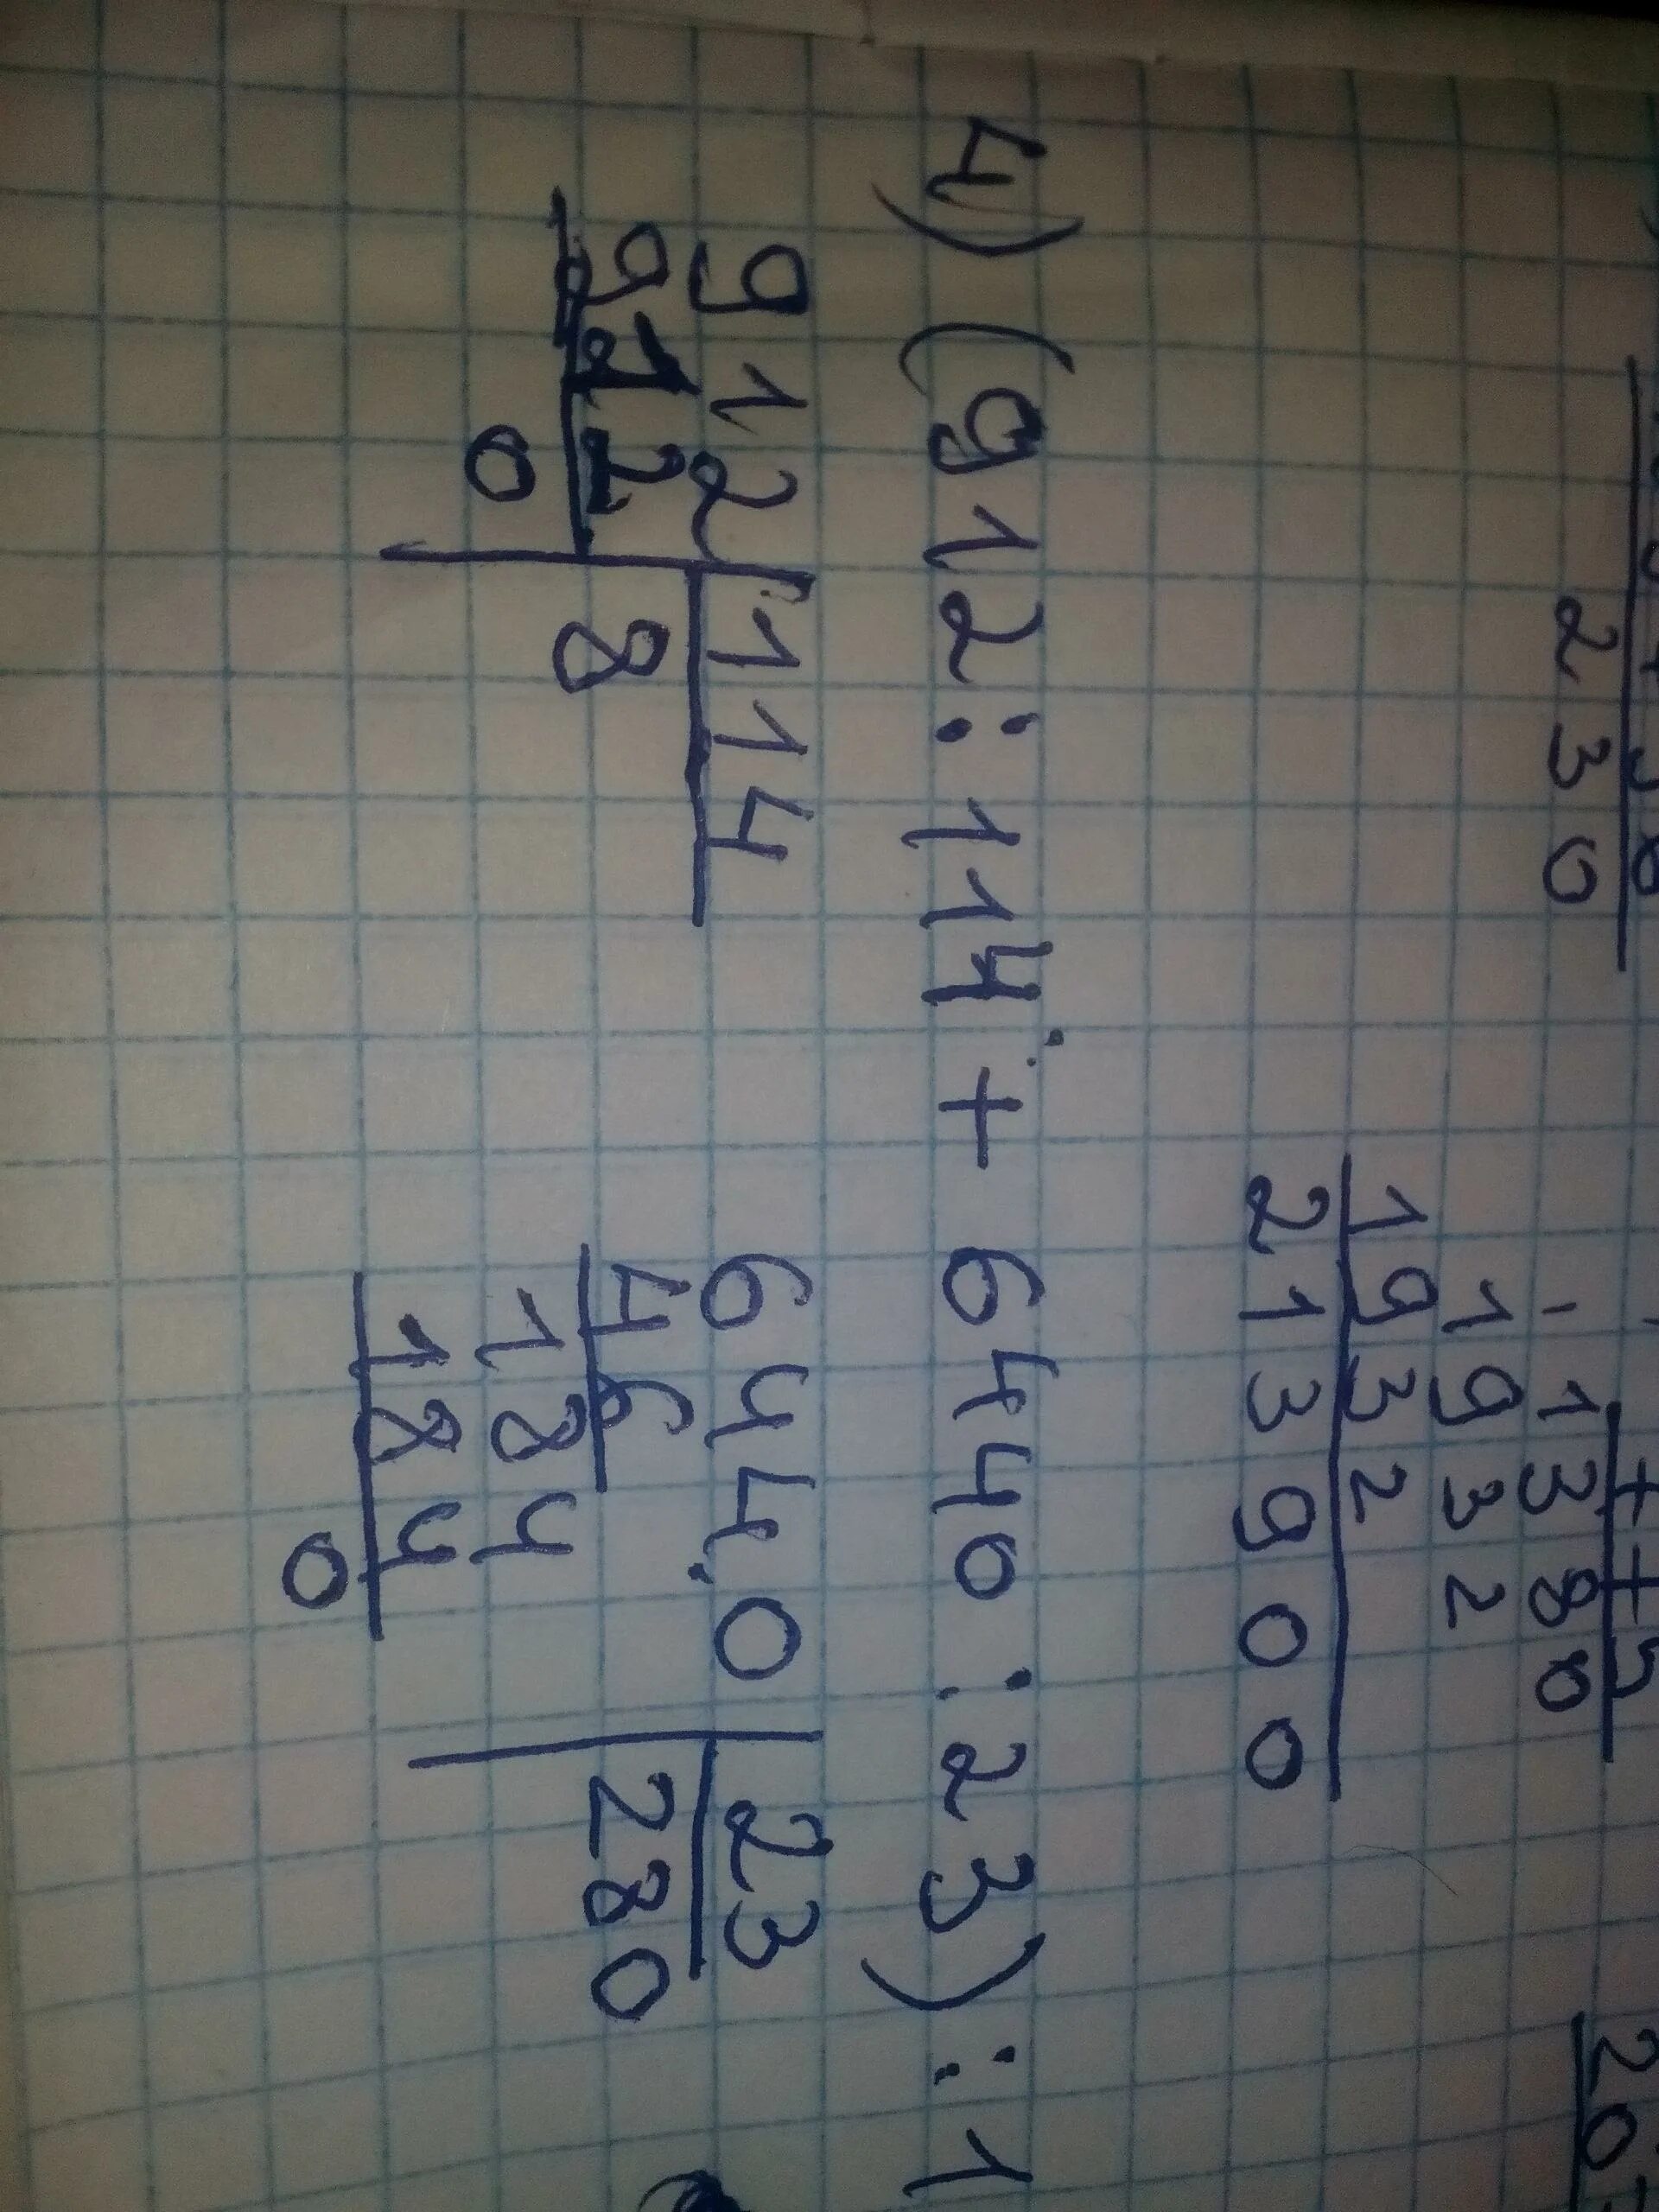 230
1388
1932
1932
213900
4) (912:114+ 6440:23):1
912 114
912 8
0
6440 23
46 280
184
184
0